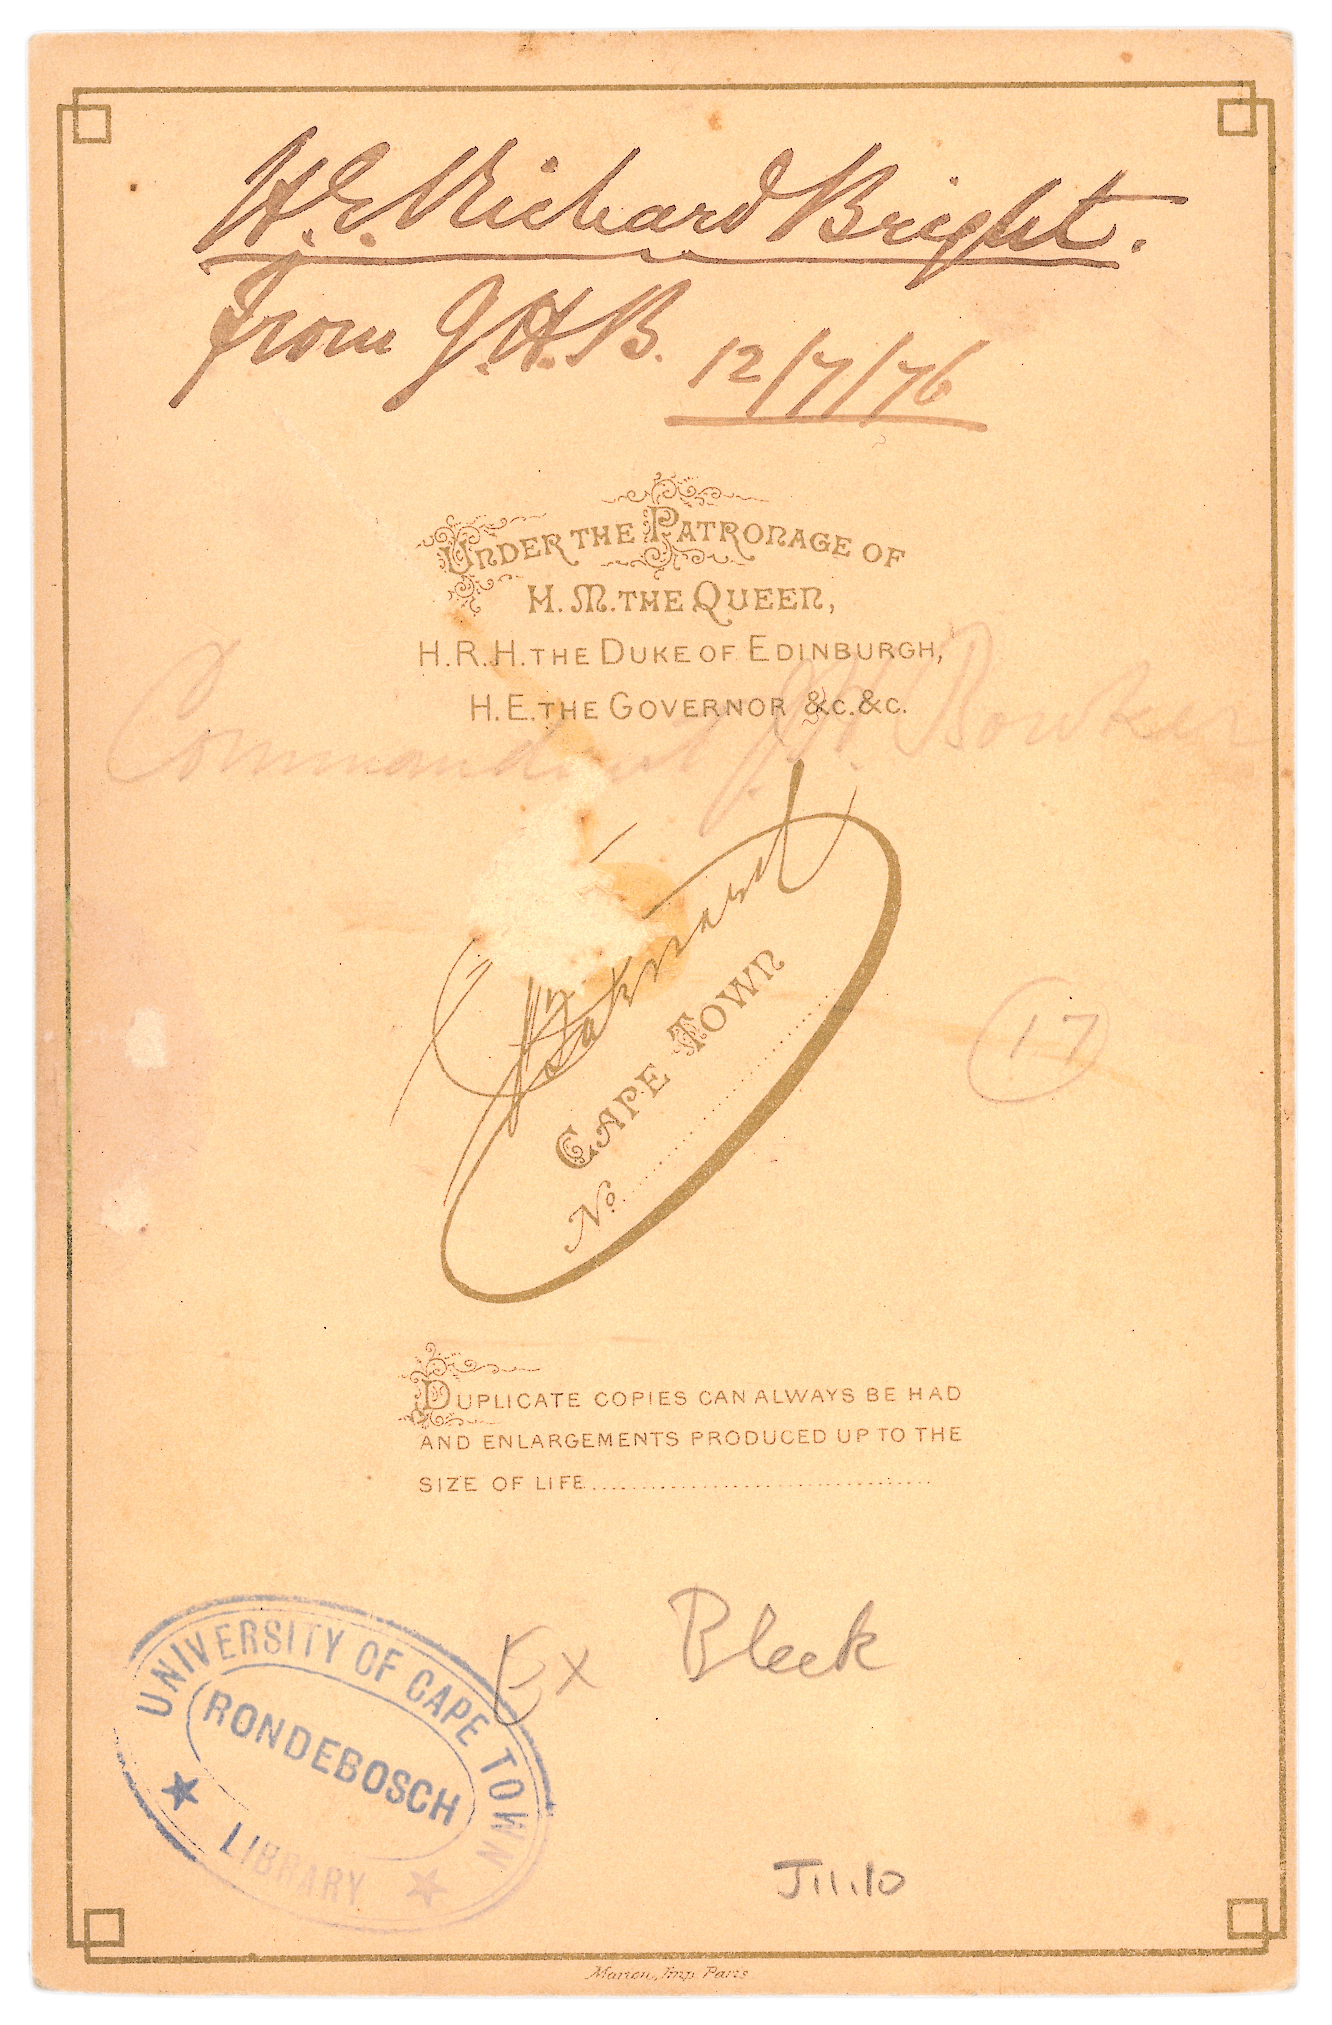 H.E. Richard Bright.
From J.H.B. 12/7/76
UNDER THE PATRONAGE OF
H. M. THE QUEEN,
H.R.H. THE DUKE OF EDINBURGH,
H.E. THE GOVERNOR &c. &c.
Commandant J.H. Bowker
S. B. Barnard
CAPE TOWN
17
No.
DUPLICATE COPIES CAN ALWAYS BE HAD
AND ENLARGEMENTS PRODUCED UP TO THE
SIZE OF LIFE
Ex Bleek
UNIVERSITY OF CAPE TOWN
RONDEBOSCH
LIBRARY
J11.10
Marion, Imp. Paris